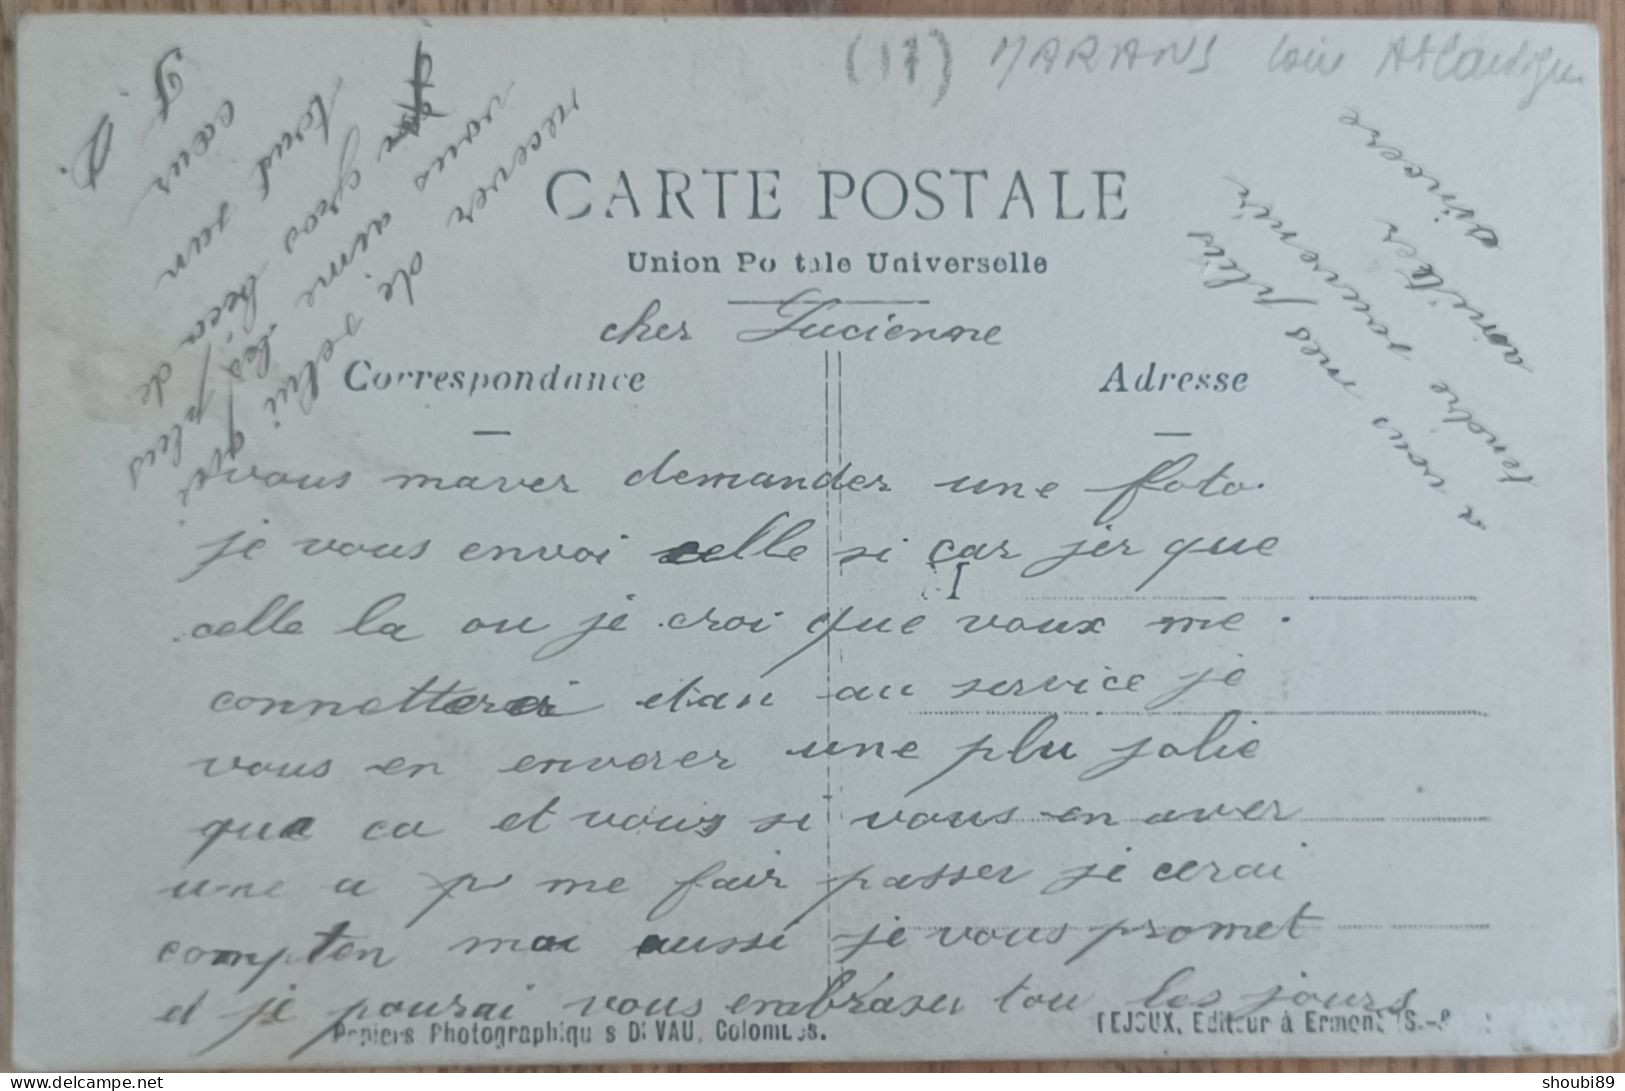 (17) MARANS Loire Atlantique
CARTE POSTALE
Union Postale Universelle
cher Lucienne
Correspondance
Adresse
vous maver demander une foto.
je vous envoi celle si car jer que
M
celle la ou je croi que voux me
connetterer etan au service je
vous en enverer une plu jolie
que ca et vous si vous en aver
une a me fair passer je cerai
compten moi aussi je vous promet
et je pourai vous embraser tou les jours
a vous mes plus
tendre souvenir
amitier
sincere
recever de celui qui
vous aime les plus
gros becos de
tout sun
cœur
Papiers Photographiques DEVAU, Colombes.
TEJOUX, Editeur à Ermont (S.-
shoubi89